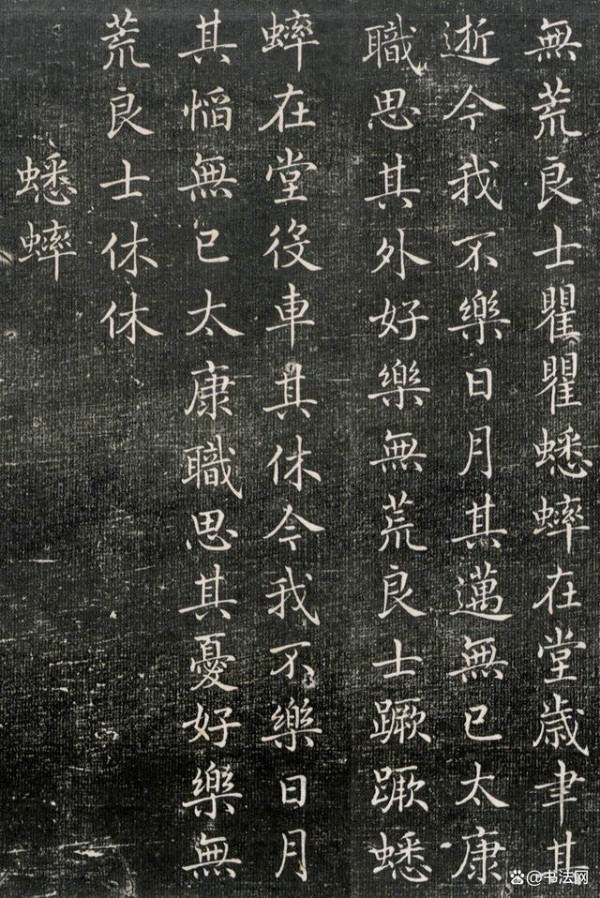 無荒良士瞿瞿蟋蟀在堂歳聿其
逝今我不樂日月其邁無已太康
職思其外好樂無荒良士蹶蹶蟋
蟀在堂役車其休今我不樂日月
其慆無已太康職思其憂好樂無
荒良士休休
蟋蟀
@书法网